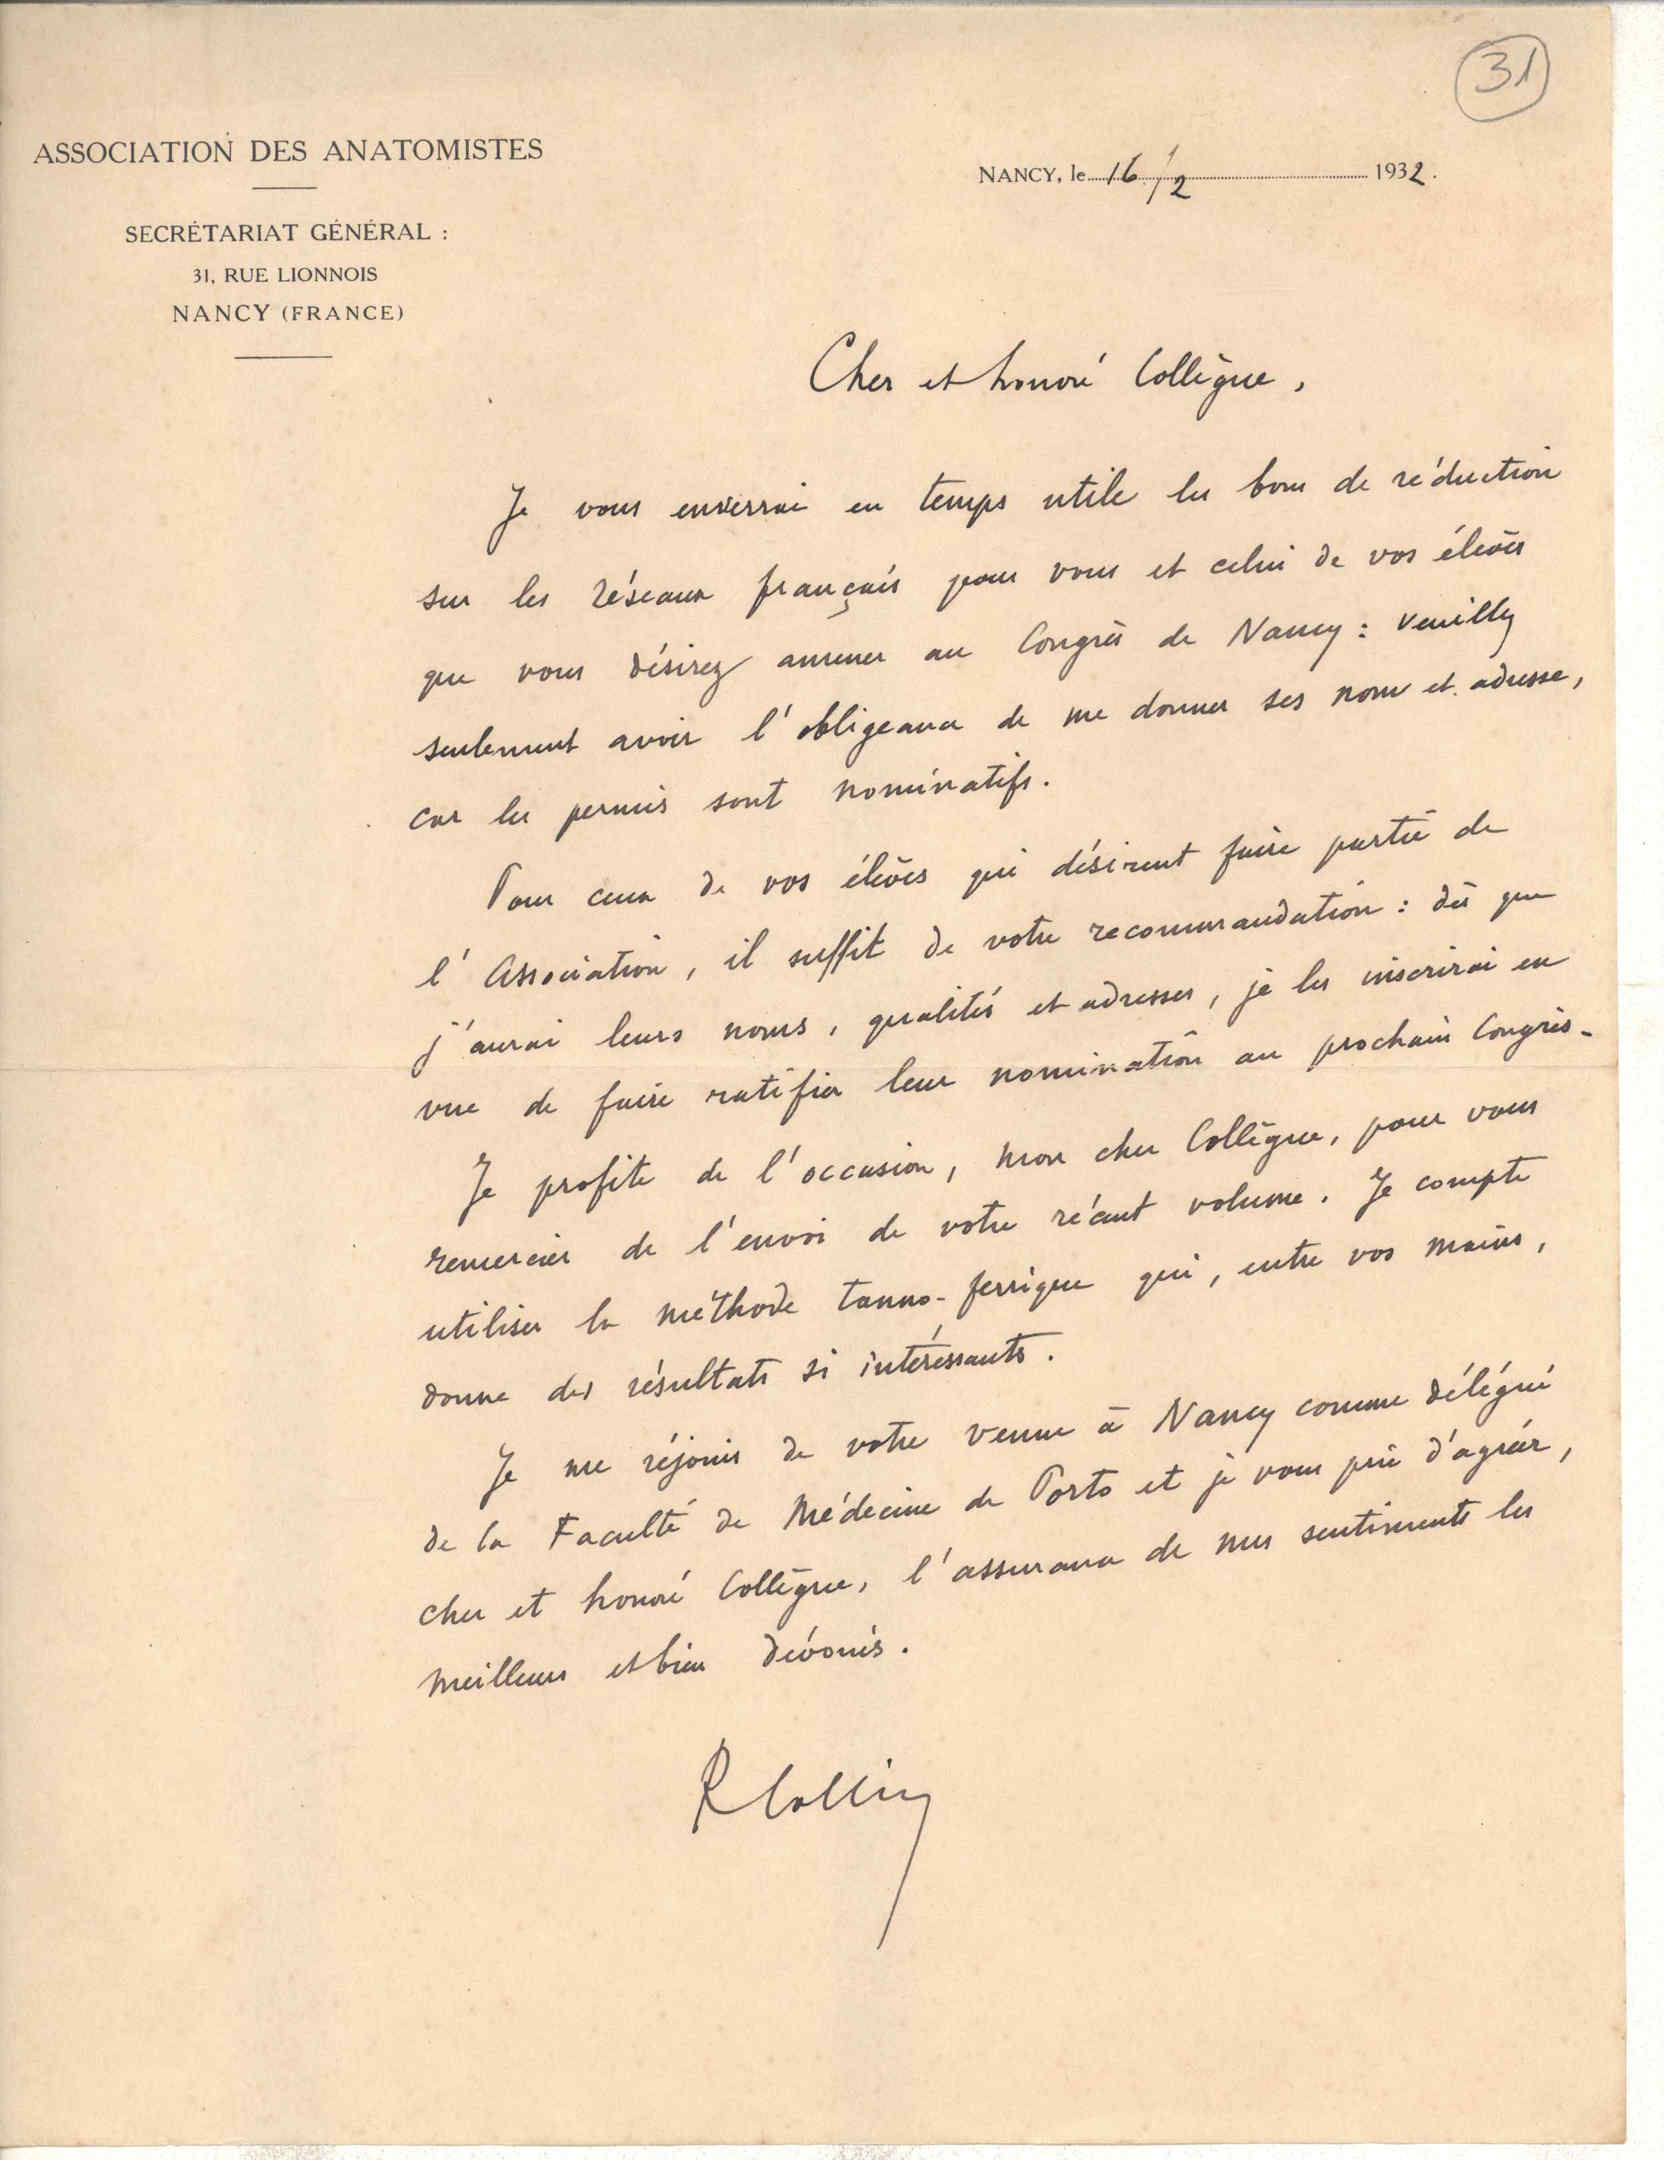 31
ASSOCIATION DES ANATOMISTES
NANCY, le 16/2 1932.
SECRÉTARIAT GÉNÉRAL :
31, RUE LIONNOIS
NANCY (FRANCE)
Cher et honoré Collègue,
Je vous enverrai en temps utile les bons de réduction
sur les réseaux français pour vous et celui de vos élèves
que vous désirez amener au Congrès de Nancy : veuillez
seulement avoir l'obligeance de me donner ses nom et adresse,
car les permis sont nominatifs.
Pour ceux de vos élèves qui désirent faire partie de
l'Association, il suffit de votre recommandation : dès que
j'aurai leurs noms, qualités et adresses, je les inscrirai en
vue de faire ratifier leur nomination au prochain Congrès.
Je profite de l'occasion, mon cher Collègue, pour vous
remercier de l'envoi de votre récent volume. Je compte
utiliser la méthode tanno-ferrique qui, entre vos mains,
donne des résultats si intéressants.
Je me réjouis de votre venue à Nancy comme délégué
de la Faculté de Médecine de Porto et je vous prie d'agréer,
cher et honoré Collègue, l'assurance de mes sentiments les
meilleurs et bien dévoués.
R Collin